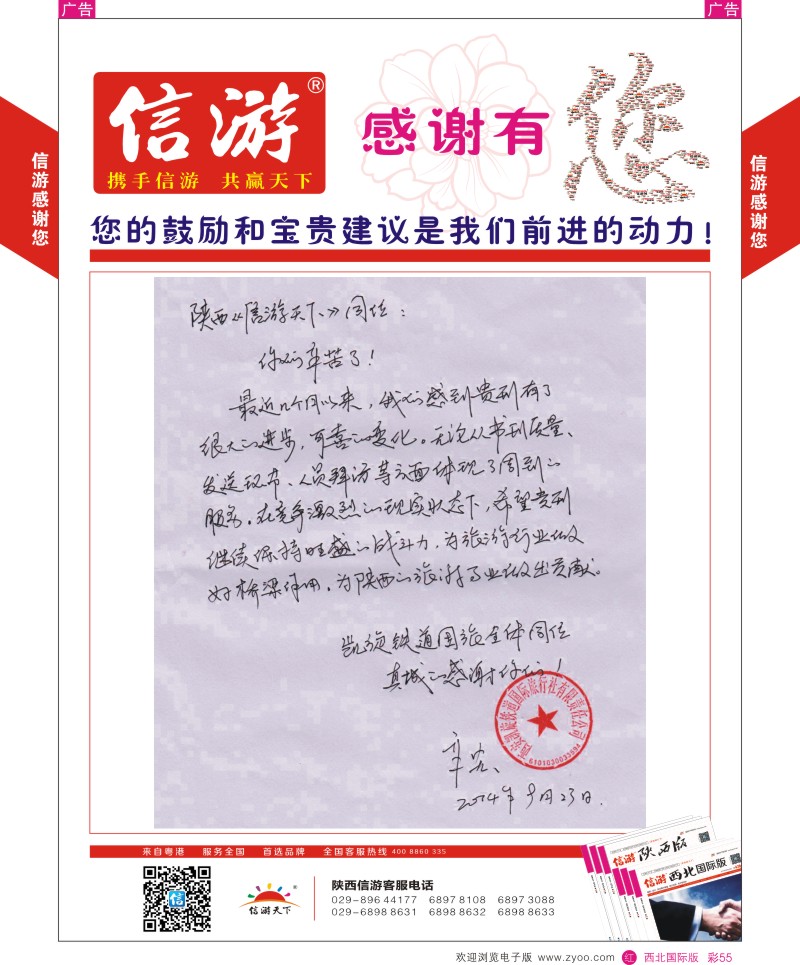 广告
广告
信游®
携手信游 共赢天下
感谢有
您
信游感谢您
信游感谢您
您的鼓励和宝贵建议是我们前进的动力！
陕西《信游天下》同仁：
你们辛苦了！
最近几个月以来，我们感到贵刊有了
很大的进步，可喜的变化。无论从书刊质量、
发送现布、人员拜访等方面体现了周到的
服务。在竞争激烈的现实状态下，希望贵刊
继续保持旺盛的战斗力，为旅游行业做
好桥梁作用，为陕西的旅游事业做出贡献。
凯旋铁道国旅全体同仁
真诚的感谢你们！
西安凯旋铁道国际旅行社有限责任公司
2014年9月23日.
来自粤港 服务全国 首选品牌 全国客服热线 400 8860 335
信
信游天下
陕西信游客服电话
029-896 44177 6897 8108 6897 3088
029-6898 8631 6898 8632 6898 8633
信游 陕西版
信游 西北国际版
欢迎浏览电子版 www.zyoo.com 红 西北国际版 彩55